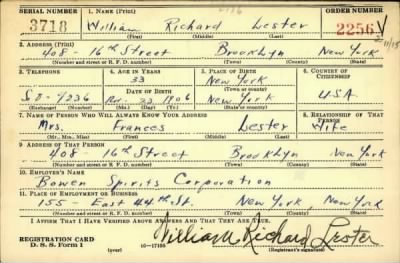 SERIAL NUMBER 1. NAME (Print) ORDER NUMBER
3718 William Richard Lester 2256
(First) (Middle) (Last)
2. ADDRESS (Print)
408 - 16th Street Brooklyn New York
(Number and street or R. F. D. number) (Town) (County) (State)
3. TELEPHONE 4. AGE IN YEARS 5. PLACE OF BIRTH 6. COUNTRY OF CITIZENSHIP
33 New York
DATE OF BIRTH (Town or county)
22 1906 New York USA
(Exchange) (Number) (Mo.) (Day) (Yr.) (State or country)
7. NAME OF PERSON WHO WILL ALWAYS KNOW YOUR ADDRESS 8. RELATIONSHIP OF THAT PERSON
Mrs. Frances Lester Wife
(Mr., Mrs., Miss) (First) (Middle) (Last)
9. ADDRESS OF THAT PERSON
408 - 16th Street Brooklyn New York
(Number and street or R. F. D. number) (Town) (County) (State)
10. EMPLOYER'S NAME
Bowen Spirits Corporation
11. PLACE OF EMPLOYMENT OR BUSINESS
155 - East 44th St. New York, New York
(Number and street or R. F. D. number) (Town) (County) (State)
I AFFIRM THAT I HAVE VERIFIED ABOVE ANSWERS AND THAT THEY ARE TRUE.
William Richard Lester
REGISTRATION CARD
D. S. S. Form 1 (over) 16-17105 (Registrant's signature)